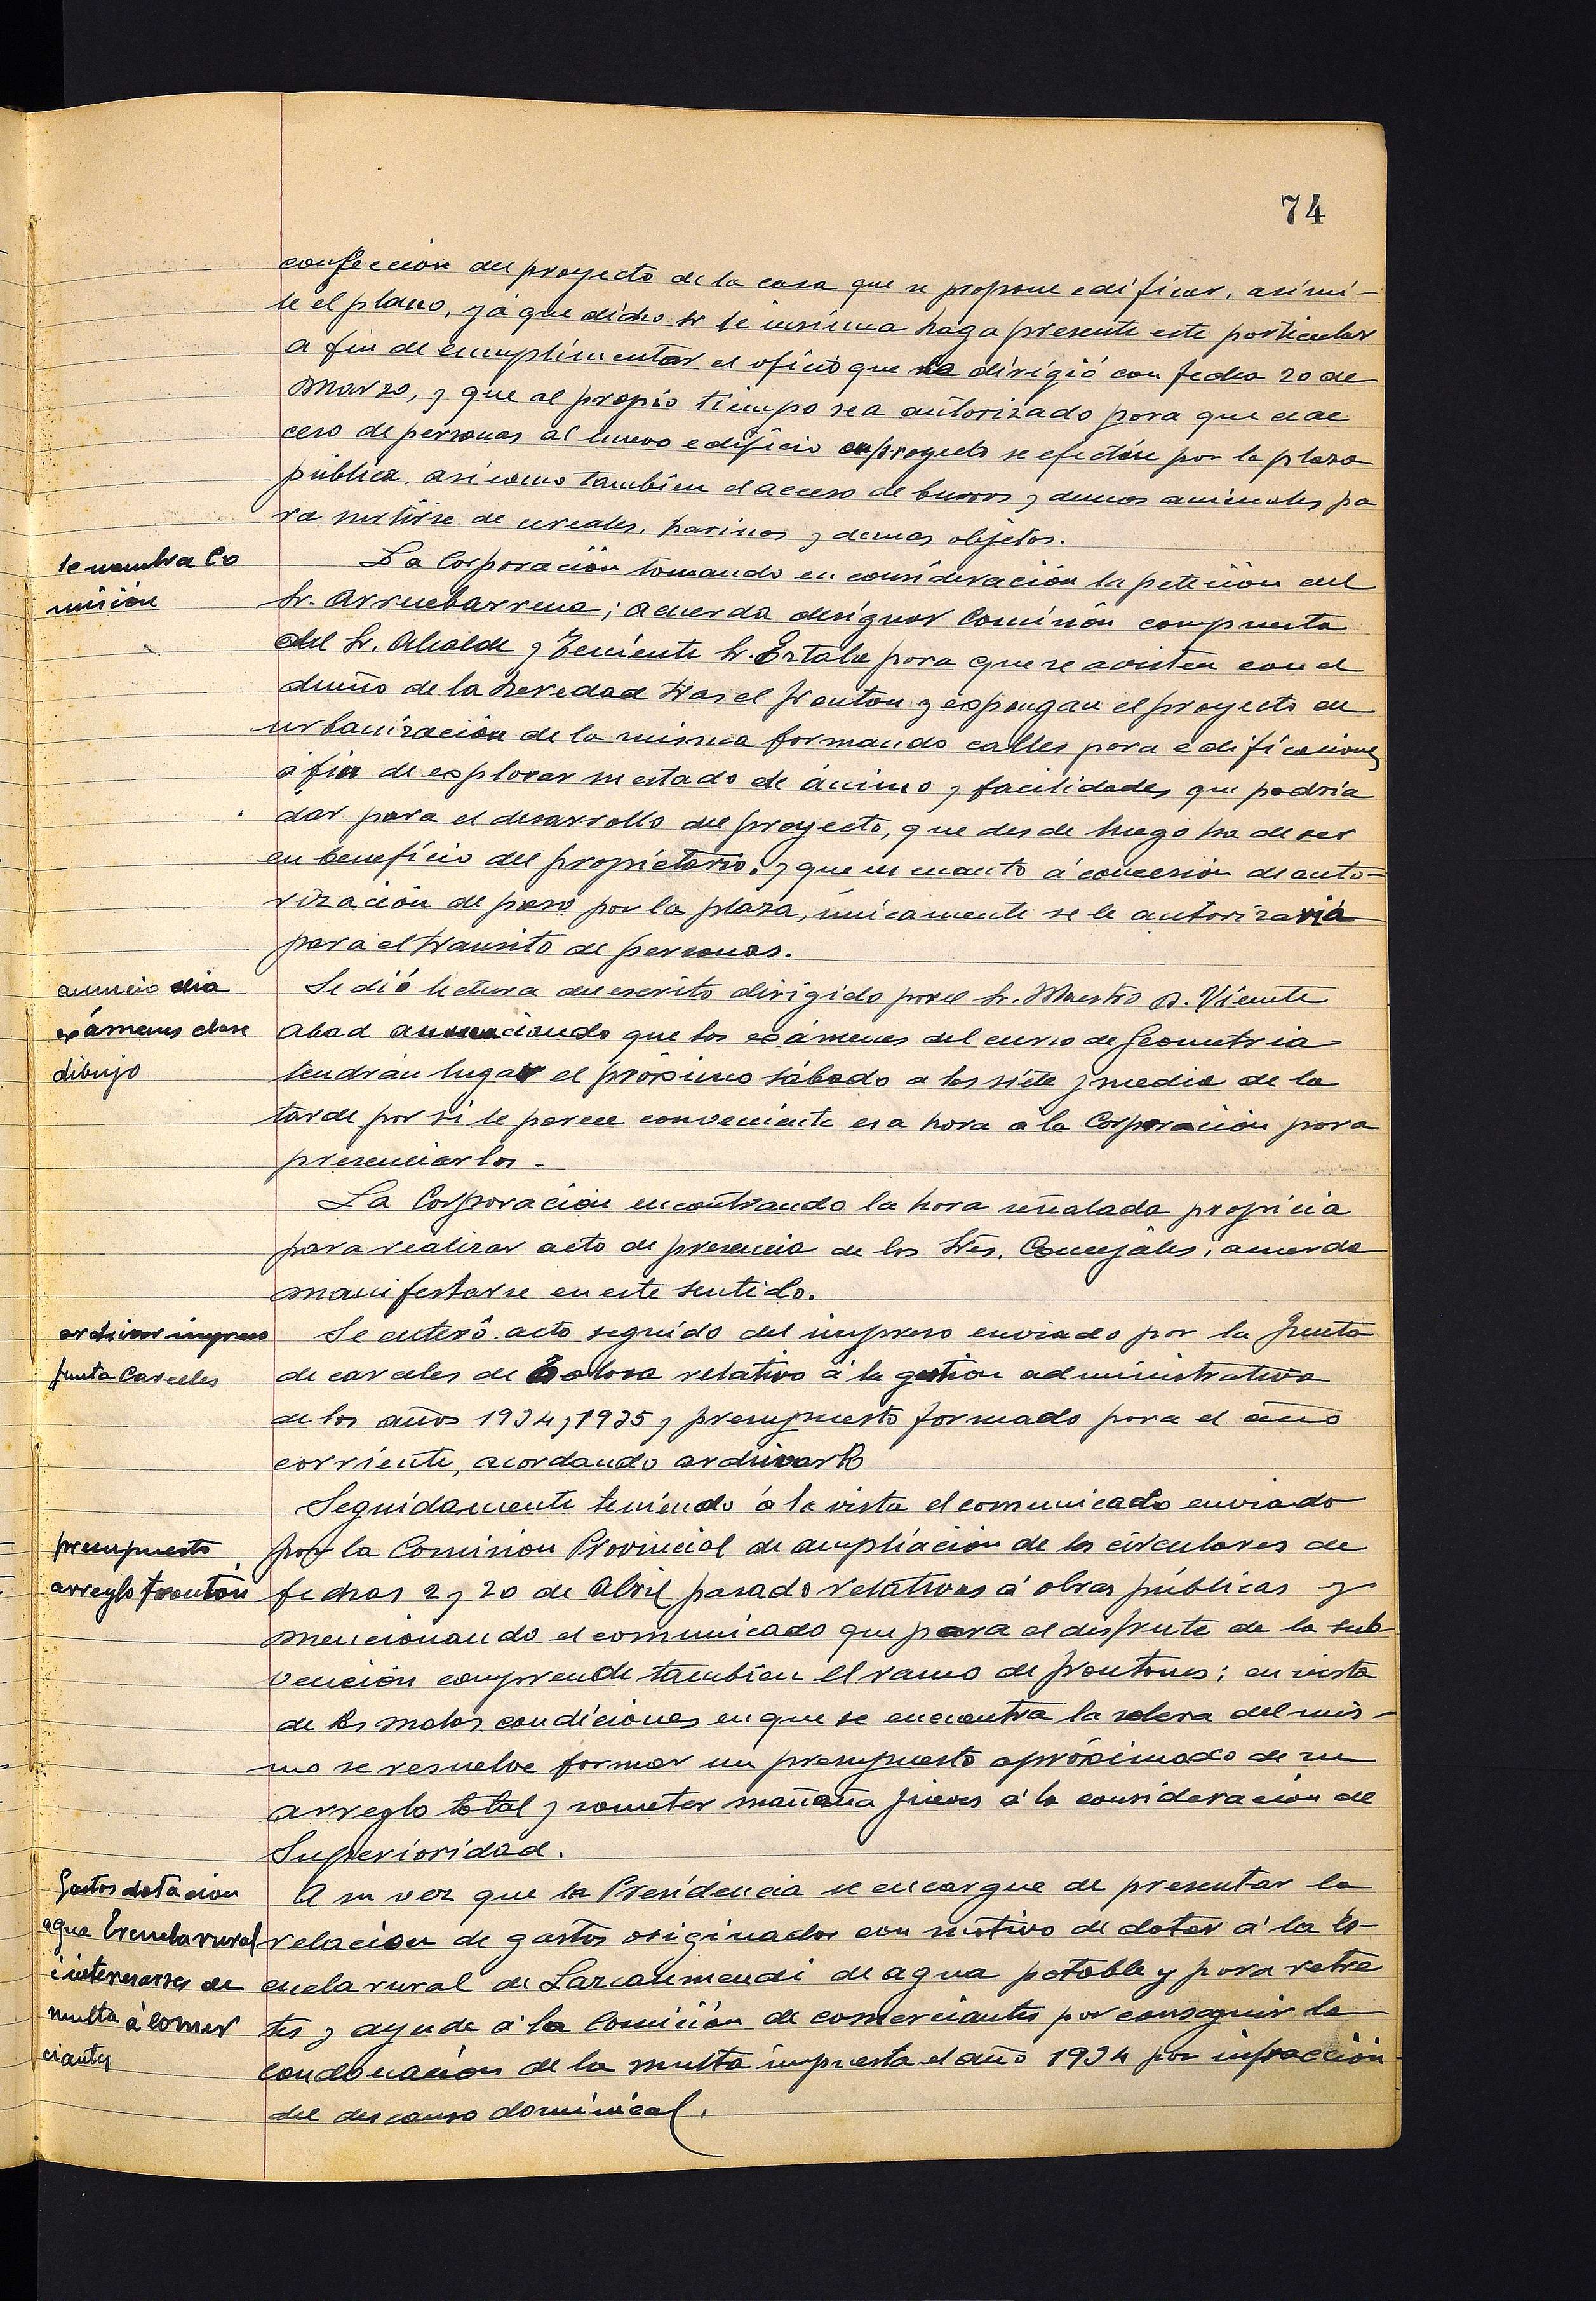 74
confección del proyecto de la casa que se propone edificar, asimi-
le el plano, yá que dicho Sr se insinua haga presente este particular
a fin de cumplimentar el oficio que se dirigió con fecha 20 de
Marzo, y que al propio tiempo sea autorizado para que el ac
ceso de personas al nuevo edificio en proyecto se efectúe por la plaza
pública, asi como tambien el acceso de burros y demas animales pa
ra surtirse de cereales, harinas y demas objetos.
Se nombra Co
misión
La Corporación tomando en consideración la petición del
Sr. Arruebarrena; acuerda designar Comisión compuesta
del Sr. Alcalde y Teniente Sr. Estala para que se avisten con el
dueño de la heredad tras el fronton y expongan el proyecto de
urbanización de la misma formando calles para edificaciones
a fin de explorar su estado de ánimo y facilidades que podria
dar para el desarrollo del proyecto, que desde luego ha de ser
en beneficio del propietario; y que en cuanto á concesión de auto-
rización de paso por la plaza, únicamente se le autorizaria
para el transito de personas.
anuncio dia
exámenes clase
dibujo
Se dió lectura del escrito dirigido por el Sr. Maestro D. Vicente
Abad anunciando que los exámenes del curso de Geometria
tendrán lugar el próximo Sábado a las siete y media de la
tarde por si le parece conveniente esa hora a la Corporación para
presenciarlos.
La Corporación encontrando la hora señalada propicia
para realizar acto de presencia de los Sres. Concejales, acuerda
manifestarse en este sentido.
archivar impreso
Junta Carceles
Se enteró acto seguido del impreso enviado por la Junta
de carceles de Tolosa relativo á la gestion administrativa
de los años 1934 y 1935 y presupuesto formado para el año
corriente, acordando archivarlo
presupuesto
arreglo fronton
Seguidamente teniendo á la vista el comunicado enviado
por la Comision Provincial de ampliación de las circulares de
fechas 2 y 20 de Abril pasado relativas á obras públicas y
mencionando el comunicado que para el disfrute de la sub-
vención comprende tambien el ramo de frontones; en vista
de las malas condiciones en que se encuentra la solera del mis-
mo se resuelve formar un presupuesto apróximado de su
arreglo total y someter mañana Jueves á la consideración de
Superioridad.
Gastos dotacion
agua Escuela rural
é interesarse de
multa á comer
ciantes
A su vez que la Presidencia se encargue de presentar la
relacion de gastos originados con motivo de dotar á la Es-
cuela rural de Lazcaomendi de agua potable y para retre
tes y ayude á la Comisión de comerciantes por conseguir la
condonación de la multa impuesta el año 1934 por infracción
del descanso dominical.